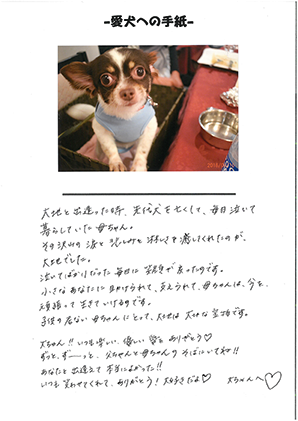 -愛犬への手紙-
大地と出逢った時、先代犬を亡くして、毎日泣いて
暮らしていた母ちゃん。
その沢山の涙と悲しみと淋しさを癒してくれたのが、
大地でした。
泣いてばかりだった毎日に笑顔が戻ったのです。
小さなあなたに助けられて、支えられて、母ちゃんは、今を、
頑張って生きていけるのです。
子供の居ない母ちゃんにとって、大地は大切な宝物です。
大ちゃん!!いつも楽しい、優しい愛をありがとう♡
ずっと、ずーっと、父ちゃんと母ちゃんのそばにいてね!!
あなたと出逢えて本当によかった!!
いつも笑わせてくれて、ありがとう!大好きだよ♡
大ちゃんへ♡